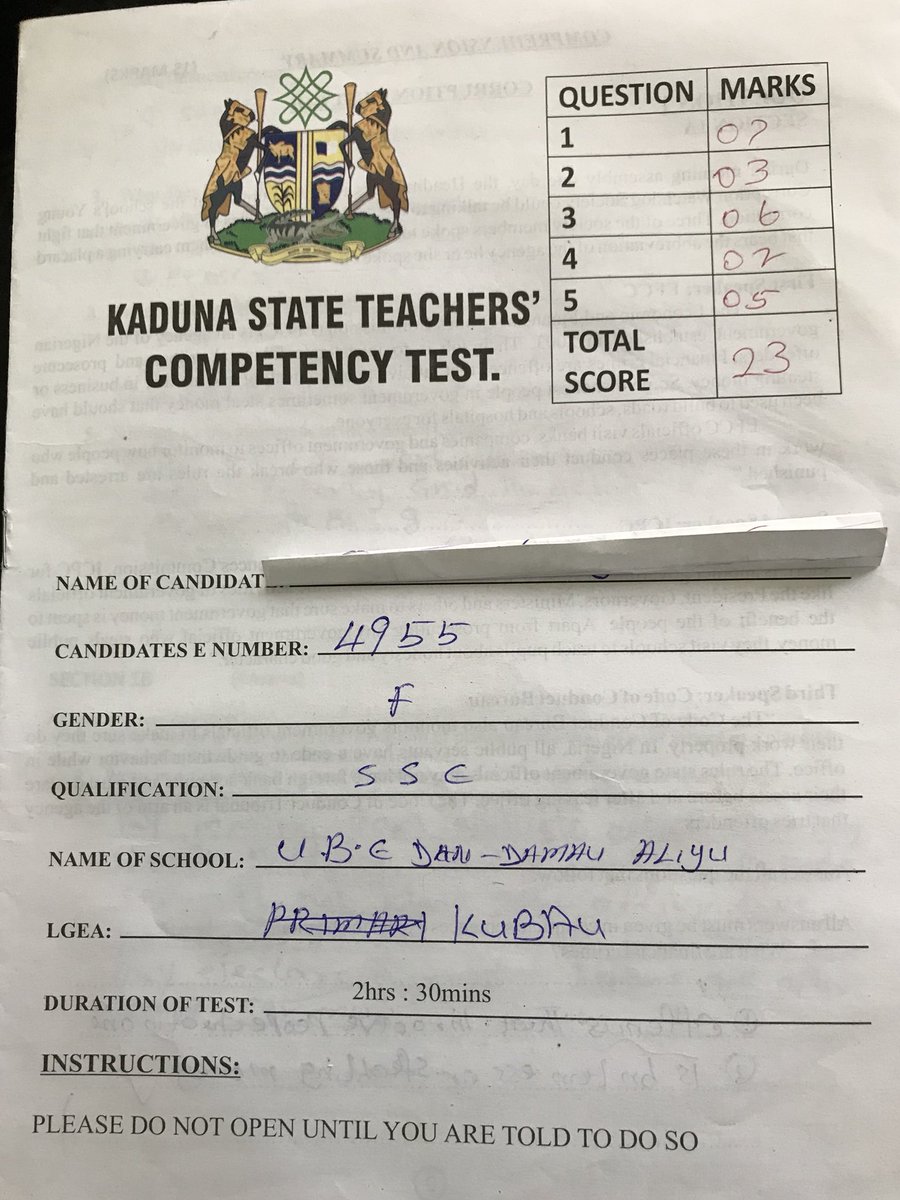 QUESTION MARKS
1 07
2 03
3 06
4 02
5 05
TOTAL SCORE 23
KADUNA STATE TEACHERS'
COMPETENCY TEST.
NAME OF CANDIDAT
CANDIDATES E NUMBER: 4955
GENDER: F
QUALIFICATION: SSE
NAME OF SCHOOL: U.B.E DAN-DAMAU ALIYU
LGEA: PRIMARY KUBAU
DURATION OF TEST: 2hrs : 30mins
INSTRUCTIONS:
PLEASE DO NOT OPEN UNTIL YOU ARE TOLD TO DO SO